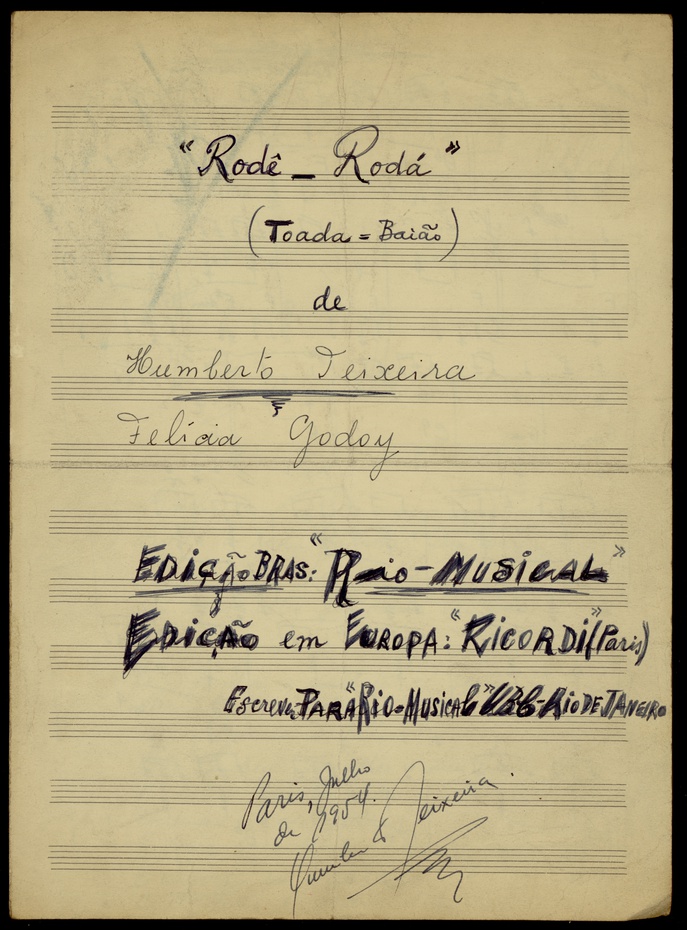 "Rodê _ Rodá"
(Toada = Baião)
de
Humberto Teixeira
Felícia Godoy
EDIÇÃO BRAS: "Rio-MUSICAL"
EDIÇÃO em EUROPA: "RICORDI" (Paris)
Escrever PARA "RIO-MUSICAL" - RIO DE JANEIRO
Paris, Julho
de 1954.
Humberto Teixeira